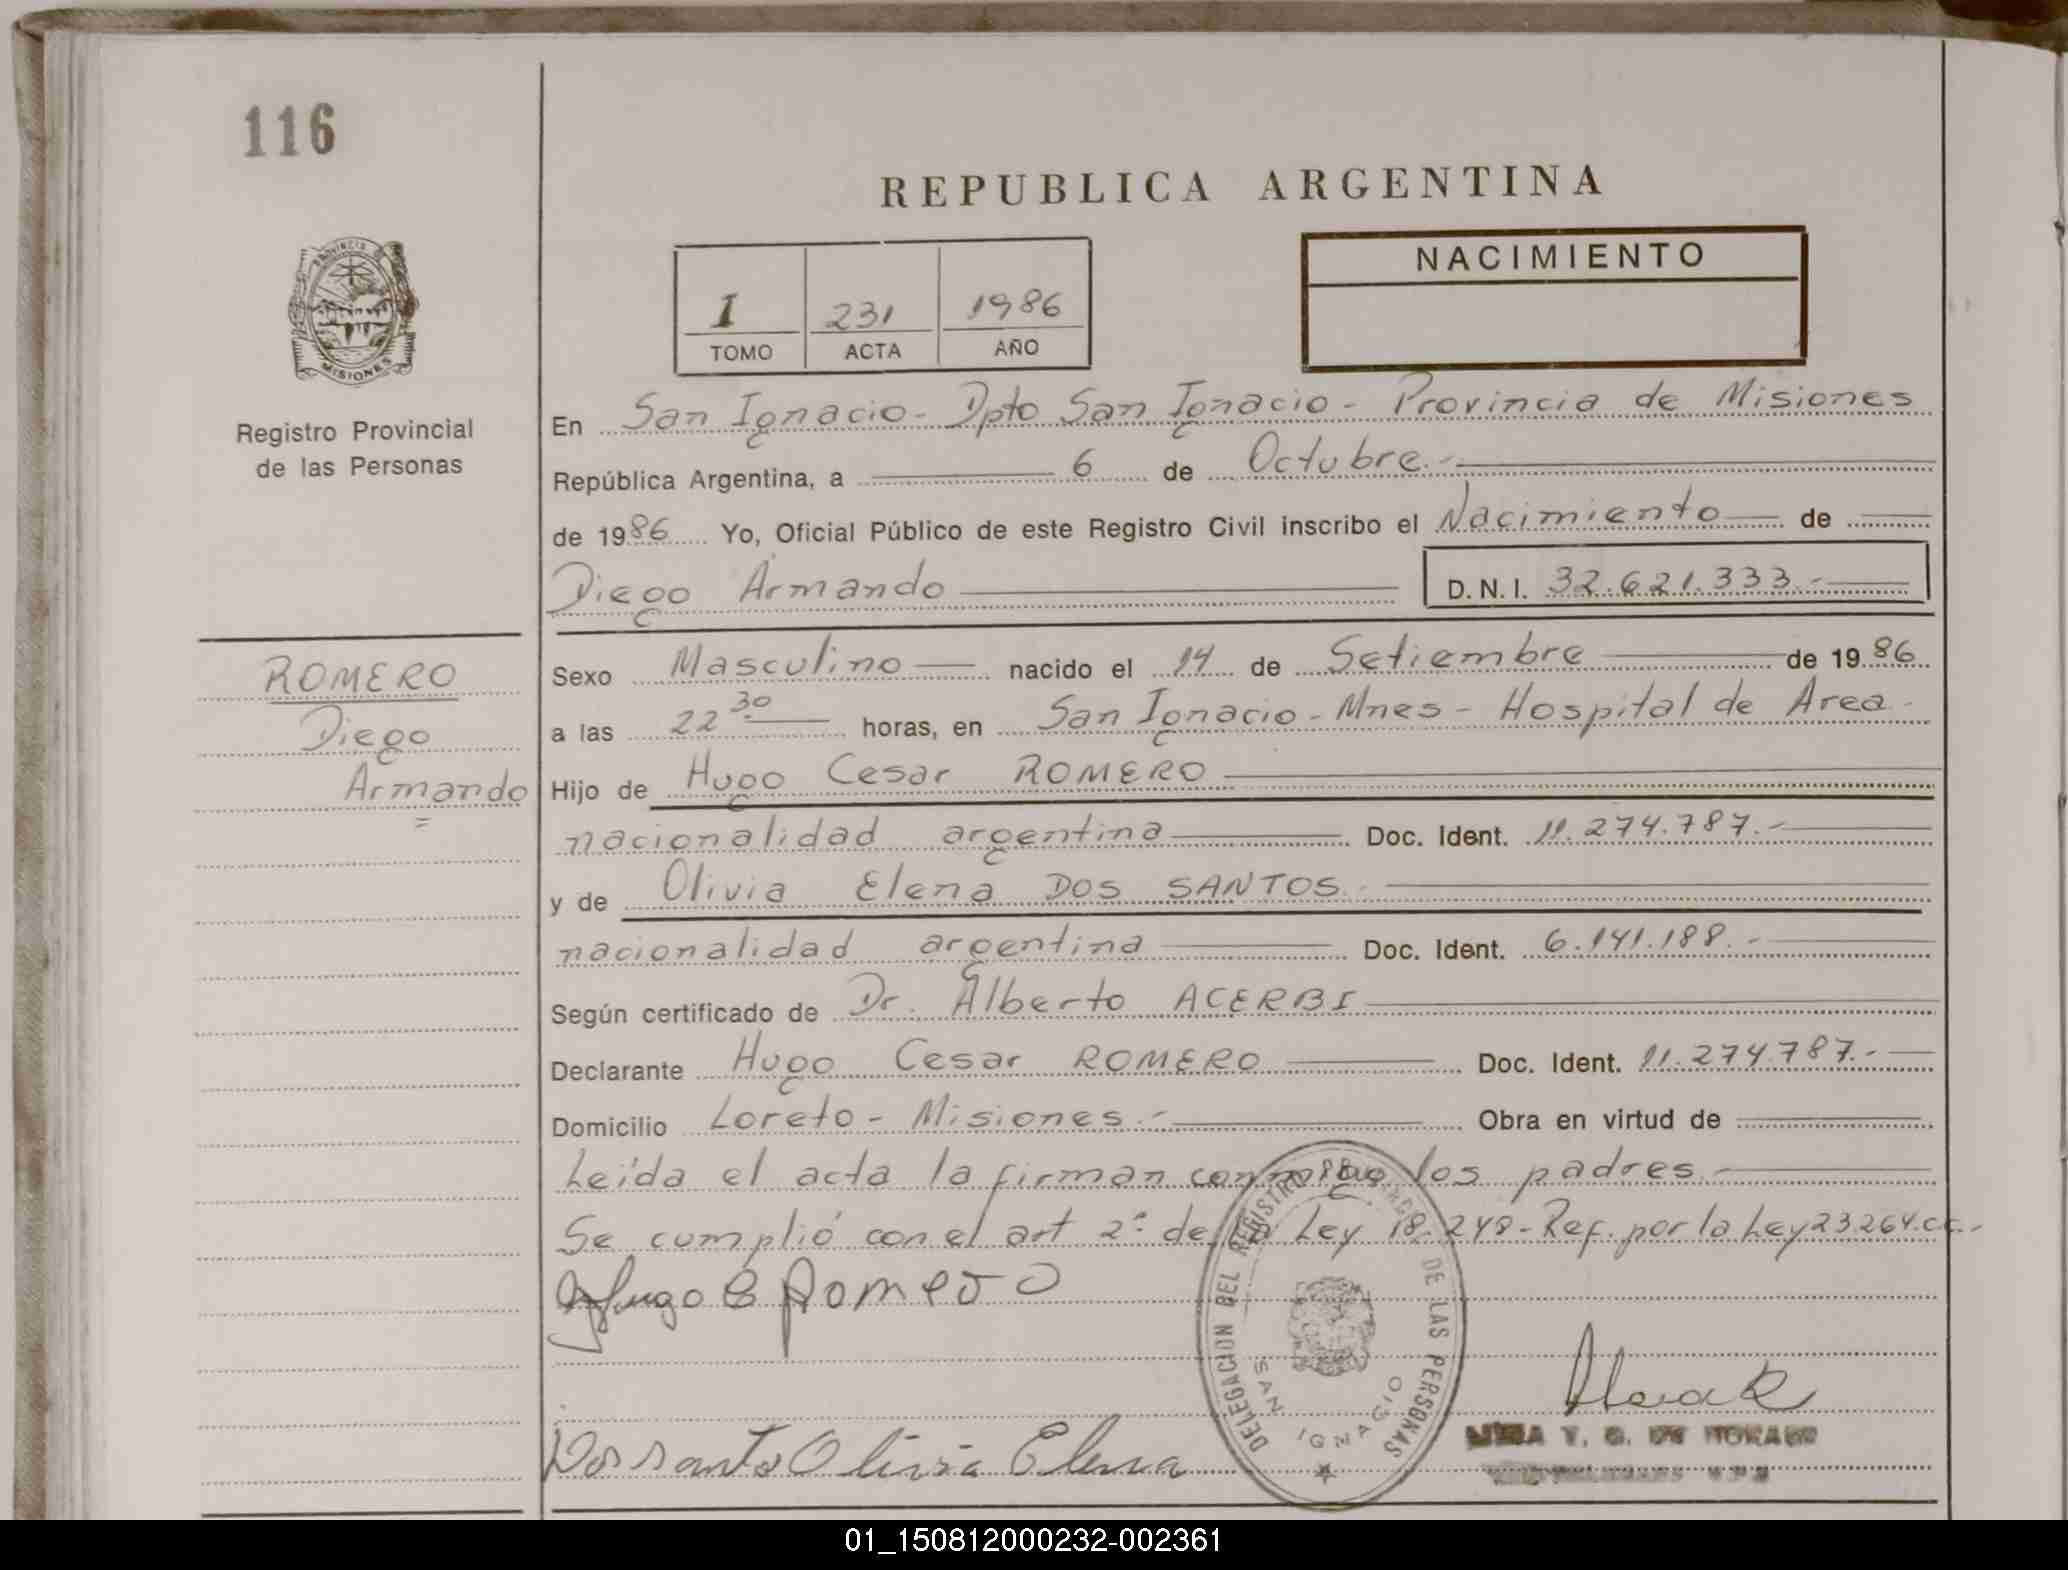 116
REPUBLICA ARGENTINA
NACIMIENTO
I 231 1986
TOMO ACTA AÑO
PROVINCIA
MISIONES
Registro Provincial
de las Personas
En San Ignacio - Dpto San Ignacio - Provincia de Misiones
República Argentina, a 6 de Octubre.-
de 1986 Yo, Oficial Público de este Registro Civil inscribo el Nacimiento de
Diego Armando D.N.I. 32.621.333.-
ROMERO
Diego
Armando
=
Sexo Masculino nacido el 14 de Setiembre de 1986
a las 22 30 horas, en San Ignacio - Mnes - Hospital de Area -
Hijo de Hugo Cesar ROMERO
nacionalidad argentina Doc. Ident. 11.274.787.-
y de Olivia Elena DOS SANTOS.
nacionalidad argentina Doc. Ident. 6.141.188.-
Según certificado de Dr. Alberto ACERBI
Declarante Hugo Cesar ROMERO Doc. Ident. 11.274.787.-
Domicilio Loreto - Misiones.- Obra en virtud de
Leída el acta la firman conmigo los padres.
Se cumplió con el art 2º de la Ley 18.248 - Ref. por la Ley 23264.cc.-
Hugo C Romero
DELEGACION DEL REGISTRO DE LAS PERSONAS
SAN IGNACIO
Dos Santos Olivia Elena
01_150812000232-002361